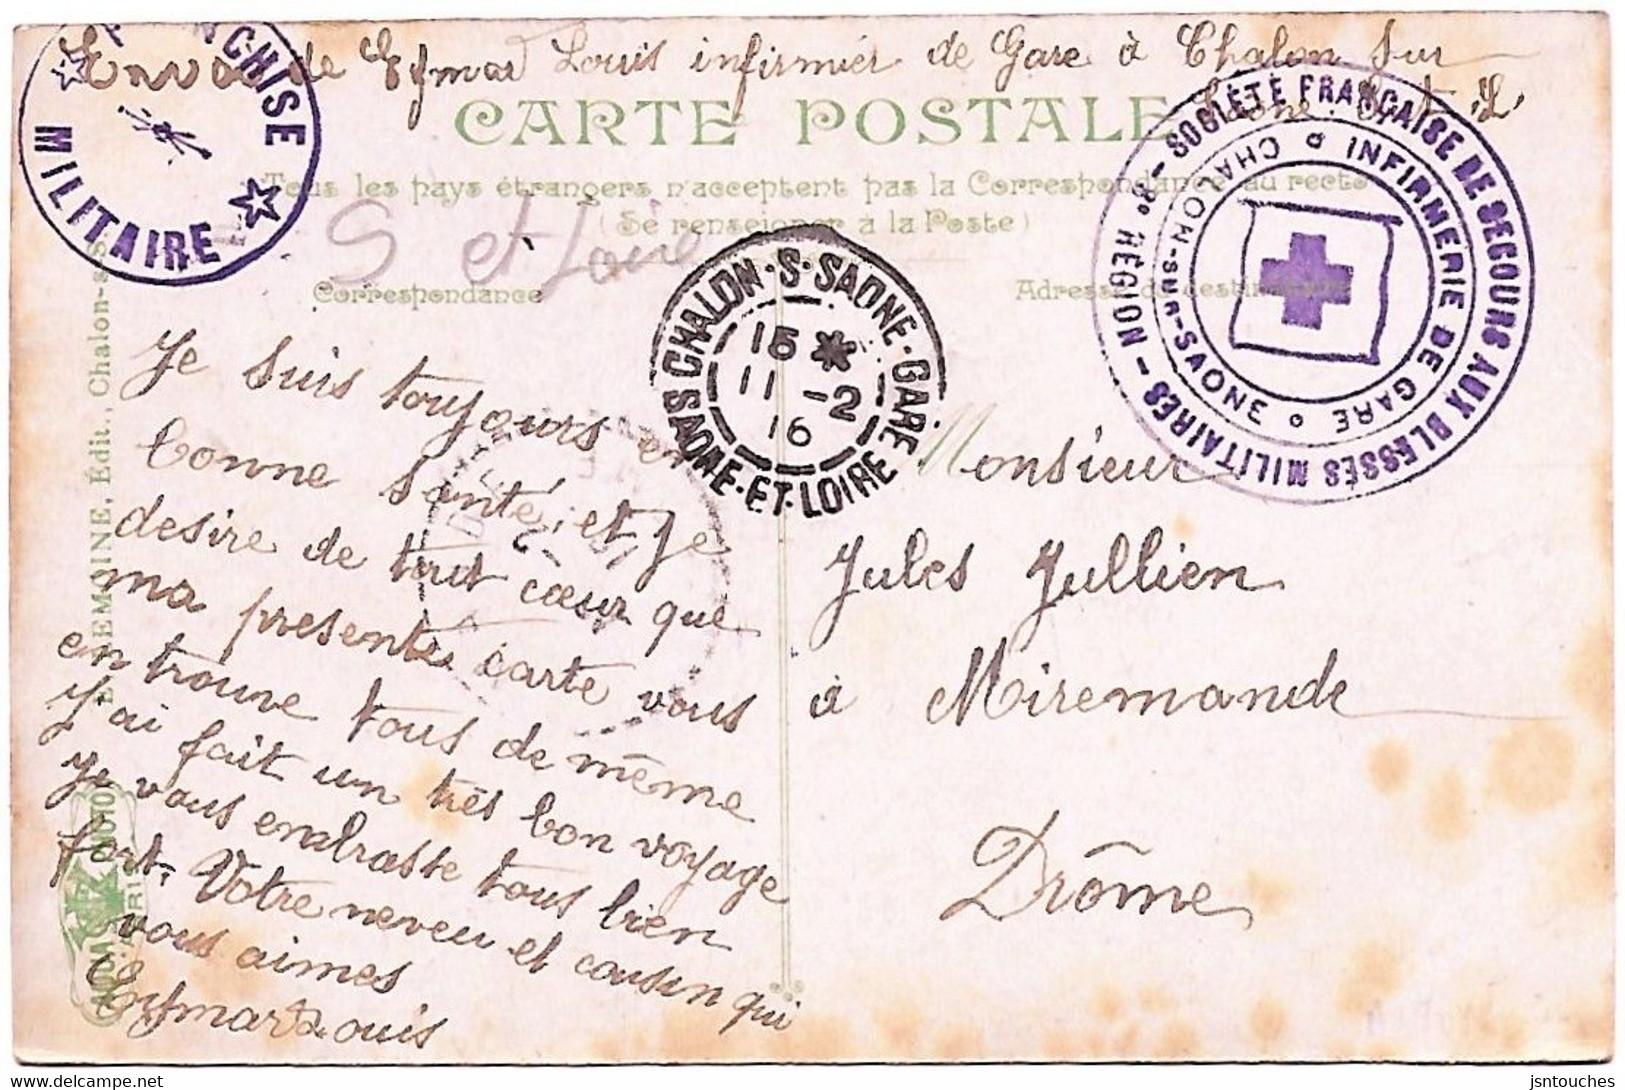 FRANCHISE MILITAIRE
Envoi de Eymar Louis infirmier de Gare à Chalon Sur
Saone S et L
CARTE POSTALE
Tous les pays étrangers n'acceptent pas la Correspondance au recto
(Se renseigner à la Poste)
S et Loire
Correspondance
Adresse du destinataire
SOCIÉTÉ FRANÇAISE DE SECOURS AUX BLESSÉS MILITAIRES - 8e RÉGION -
INFIRMERIE DE GARE
CHALON-SUR-SAONE
CHALON-S-SAONE-GARE
15 *
11 -2
16
SAONE-ET-LOIRE
Je Suis toujours en
bonne Santé, et je
desire de tout cœur que
ma presente carte vous
en trouve tous de même
J'ai fait un très bon voyage
Je vous enbrasse tous bien
fort. Votre neveu et cousin qui
vous aimes
Eymar Louis
Monsieur
Jules Jullien
à Miremande
Drôme
B. LEMOINE, Édit., Chalon-s-S
PARIS
jsntouches